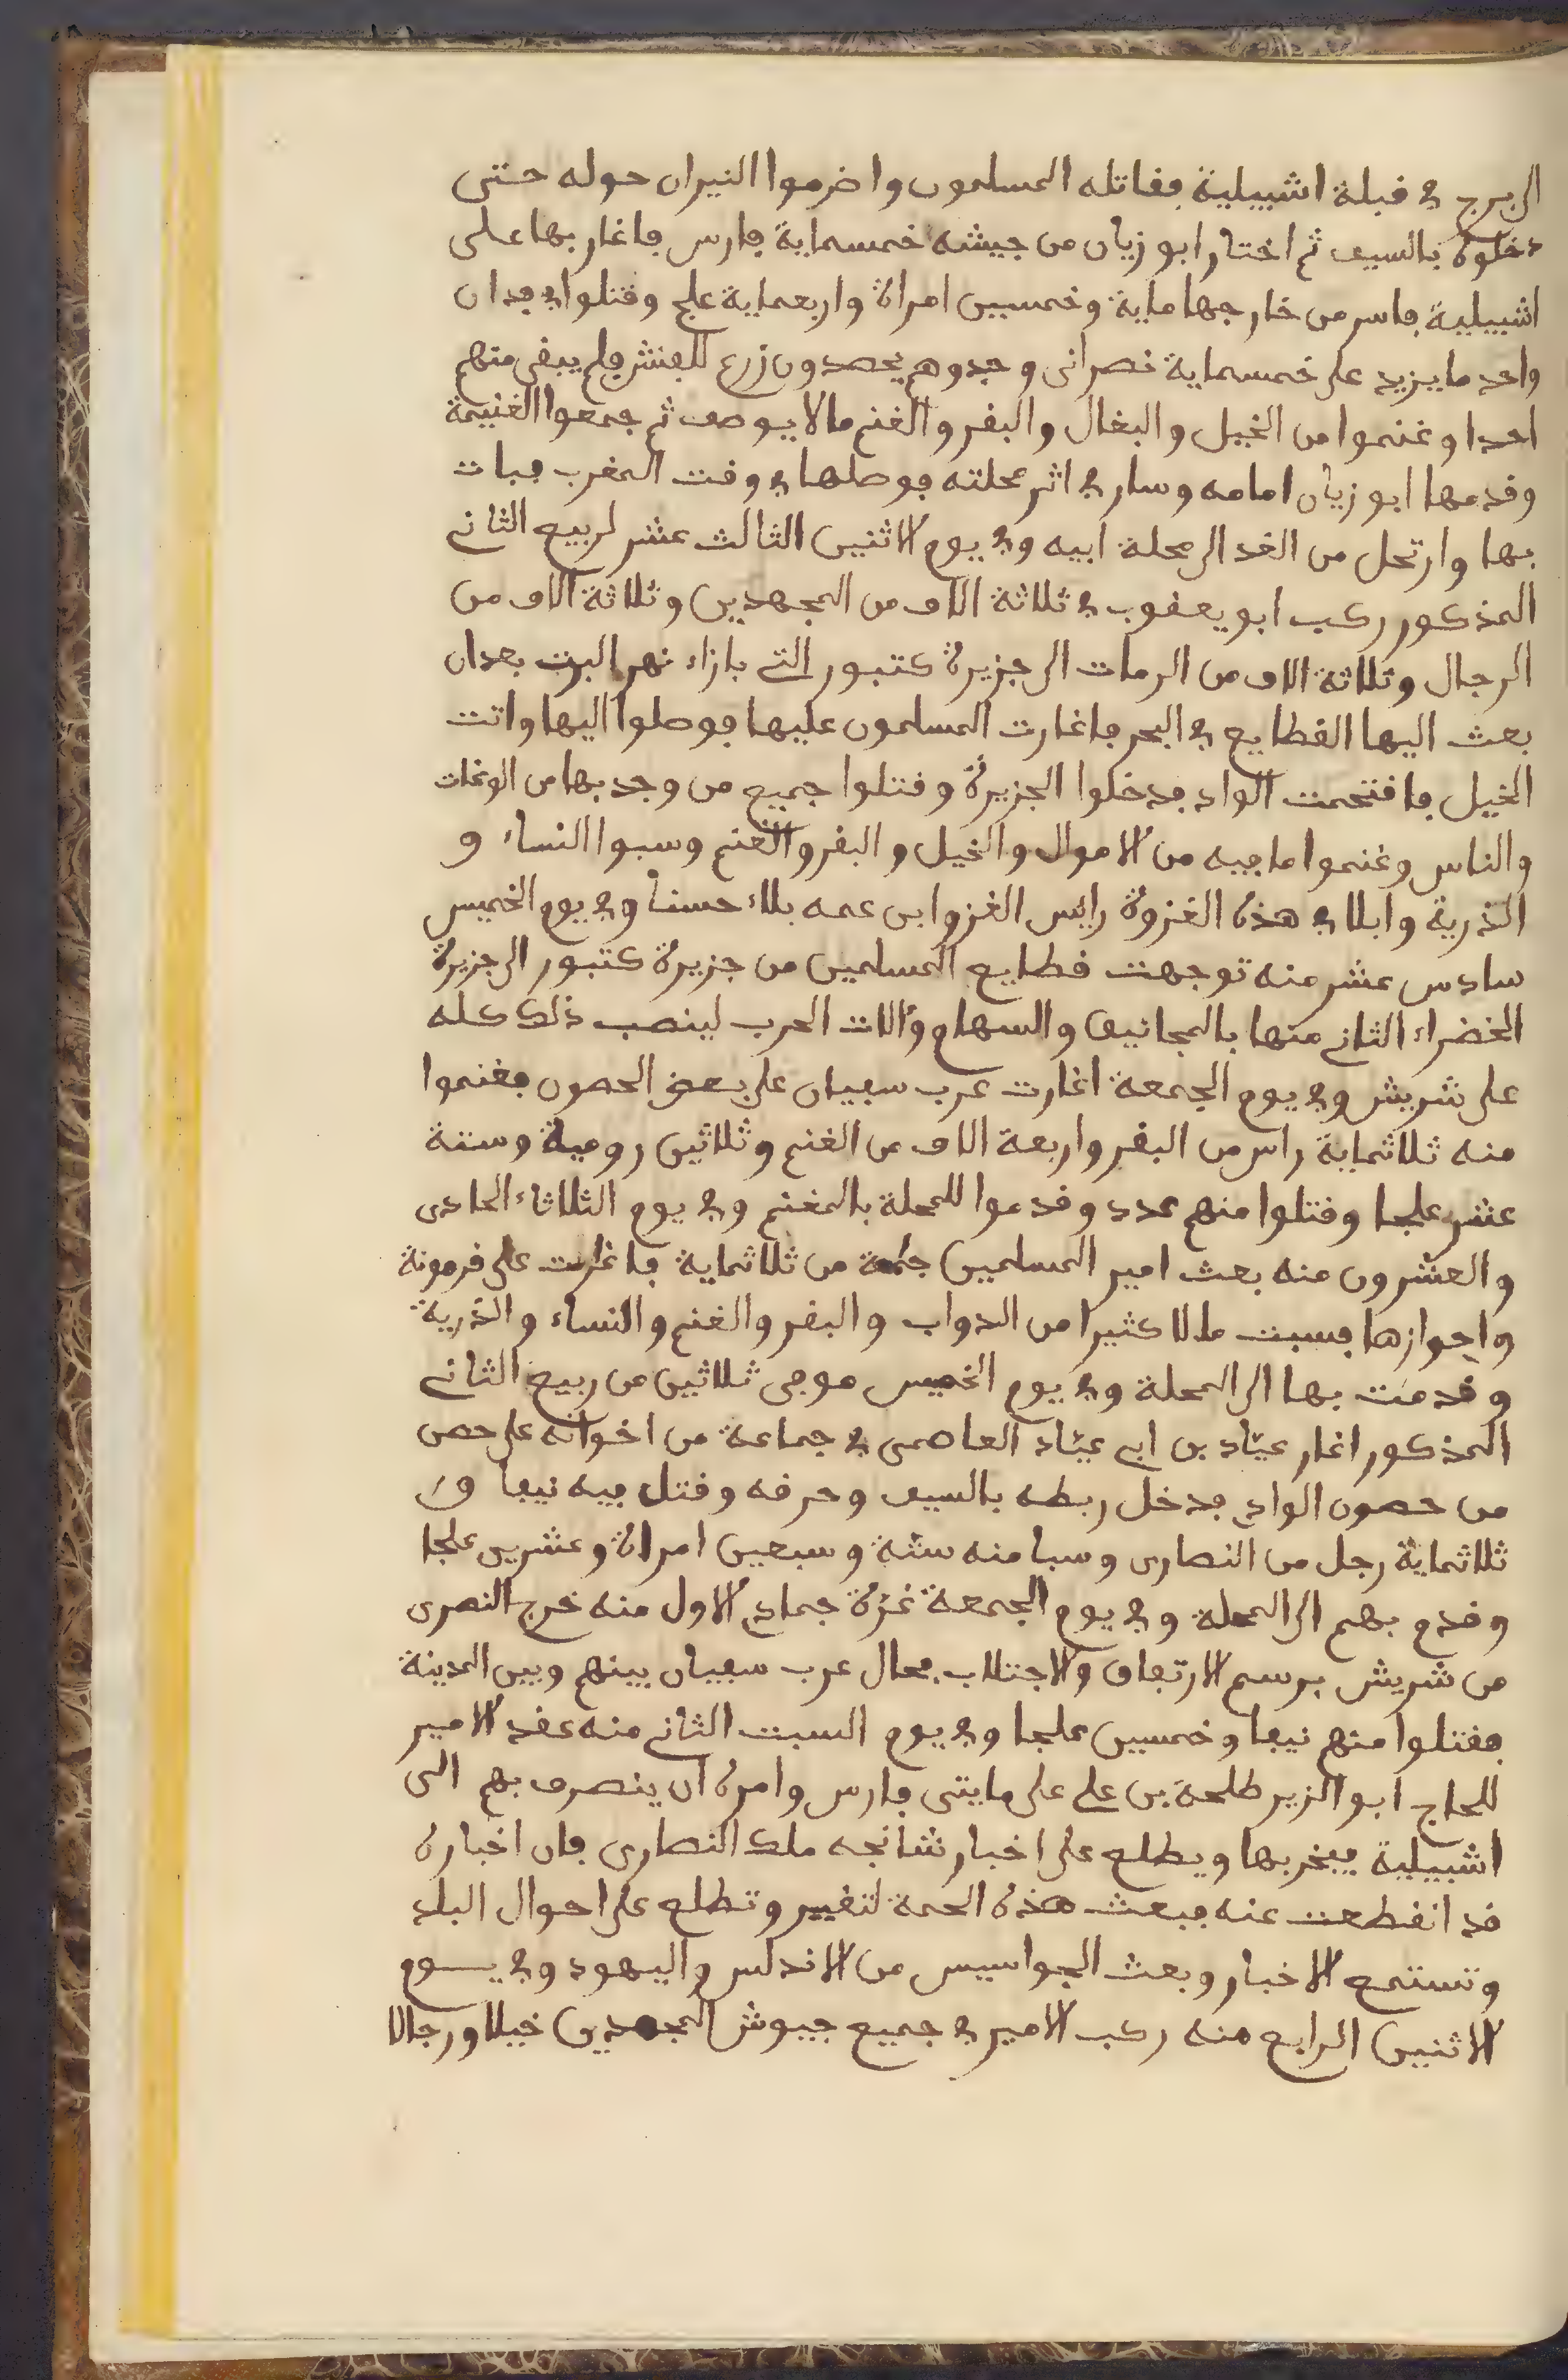 الى برج في قبلة اشبيلية فقاتله المسلمون واضرموا النيران حوله حتى
دخلوه بالسيف ثم اختار ابو زيان من جيشه خمسماية فارس فاغار بها على
اشبيلية فاسر من خارجها ماية وخمسين امراة واربعماية علج وقتلوا في فدان
واحد ما يزيد على خمسماية نصرانى وجدوهم يحصدون زرع للفنش فلم يبقى منهم
احدا وغنموا من الخيل والبغال والبقر والغنم ما لا يوصف ثم جمعوا الغنيمة
وقدمها ابو زيان امامه وسار في اثر محلته فوصلها في وقت المغرب فبات
بها وارتحل من الغد الى محلة ابيه وفي يوم الاثنين الثالث عشر لربيع الثاني
المذكور ركب ابو يعقوب في ثلاثة الاف من المجهدين وثلاثة الاف من
الرجال وثلاثة الاف من الرمات الى جزيرة كتبور التي بازاء نهر البرت بعد ان
بعث اليها القطايع في البحر فاغارت المسلمون عليها فوصلوا اليها واتت
الخيل فاقتحمت الواد فدخلوا الجزيرة وقتلوا جميع من وجد بها من الوغات
والناس وغنموا ما فيه من الاموال والخيل والبقر والغنم وسبوا النساء و
الذرية وابلا في هذه الغزوة رايس الغزو ابن عمه بلاء حسنا وفي يوم الخميس
سادس عشر منه توجهت قطايع المسلمين من جزيرة كتبور الى جزيرة
الخضراء الثاني منها بالمجانيق والسهام وءالات الحرب لينصب ذلك كله
على شريش وفي يوم الجمعة اغارت عرب سفيان على بعض الحصون فغنموا
منه ثلاثماية راس من البقر واربعة الاف من الغنم وثلاثين رومية وستة
عشر علجا وقتلوا منهم عدد وقدموا للمحلة بالمغنم وفي يوم الثلاثاء الحادى
والعشرون منه بعث امير المسلمين جلمة من ثلاثماية فاغارت على قرمونة
واحوازها فسبت مالا كثيرا من الدواب والبقر والغنم والنساء والذرية
وقدمت بها الى المحلة وفي يوم الخميس موفى ثلاثين من ربيع الثاني
المذكور اغار عيّاد بن ابي عيّاد العاصمى في جماعة من اخوانه على حصن
من حصون الوادي فدخل ربطه بالسيف وحرقه وقتل فيه نيفا و
ثلاثماية رجل من النصارى وسبا منه ستة وسبعين امراة وعشرين علجا
وقدم بهم الى المحلة وفي يوم الجمعة غرّة جمادي الاول منه خرج النصرى
من شريش برسم الارتفاق والاجتلاب فحال عرب سفيان بينهم وبين المدينة
فقتلوا منهم نيفا وخمسين علجا وفي يوم السبت الثاني منه عقد الامير
للحاج ابو الزير طلحة بن علي على مايتى فارس وامره ان ينصرف بهم الى
اشبيلية فيخربها ويطلع على اخبار شانجه ملك النصارى فان اخباره
قد انقطعت عنه فبعث هذه الحمة لتغيير وتطلع على احوال البلد
وتستمع الاخبار وبعث الجواسيس من الاندلس واليهود وفي يوم
الاثنين الرابع منه ركب الامير في جميع جيوش المجهدين خيلا ورجالا